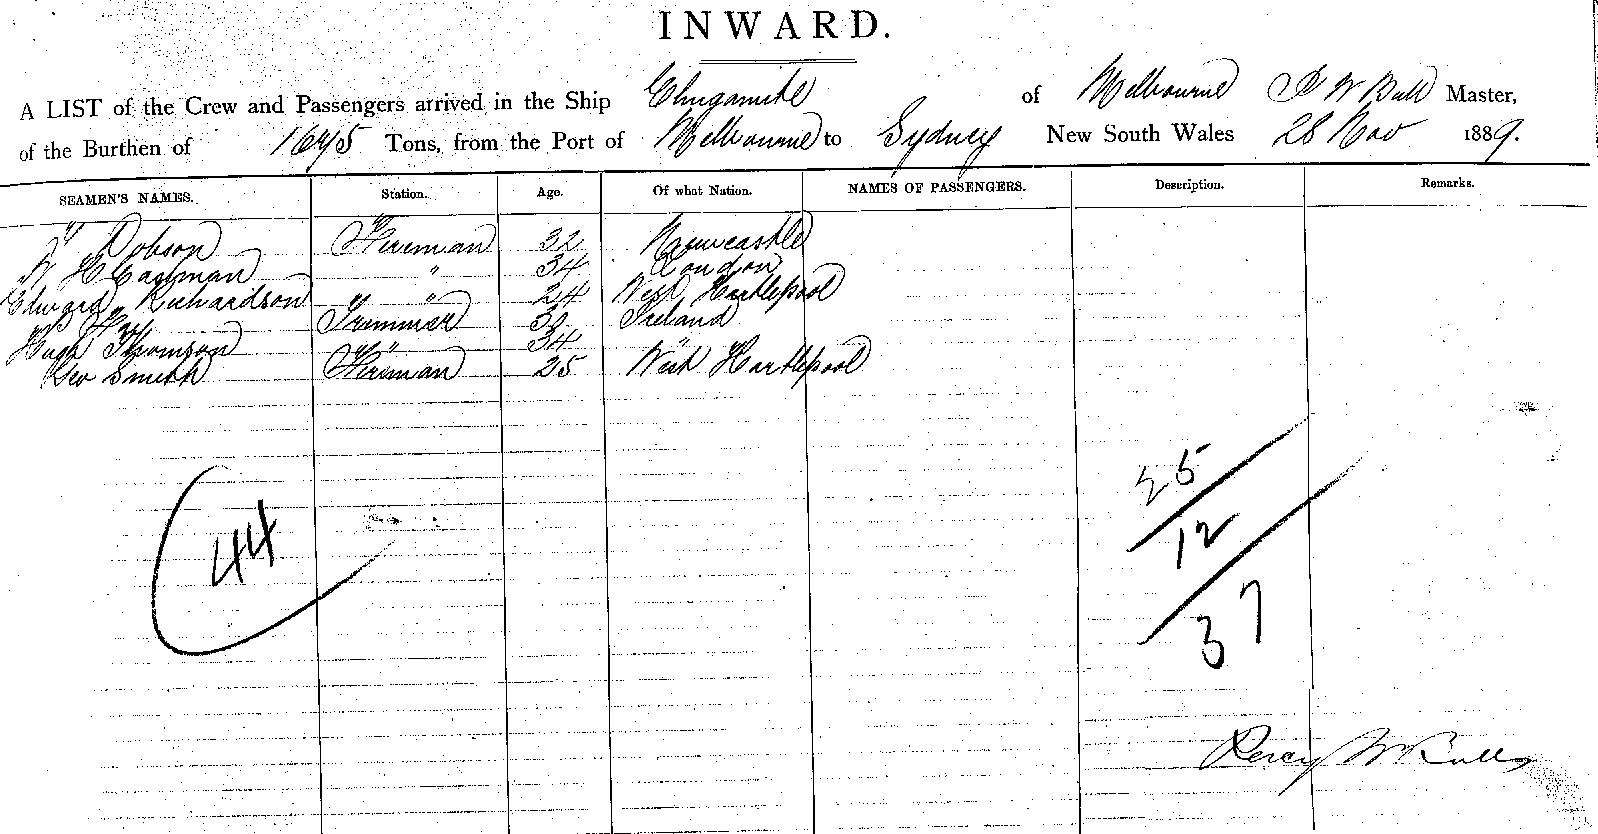 INWARD.
A LIST of the Crew and Passengers arrived in the Ship Elingamite of Melbourne P W Bull Master,
of the Burthen of 1675 Tons, from the Port of Melbourne to Sydney New South Wales 28 Nov 1889.
SEAMEN'S NAMES. Station. Age. Of what Nation. NAMES OF PASSENGERS. Description. Remarks.
Dobson Fireman 32 Newcastle
W H Eastman " 34 London
Edward Richardson " " 24 West Hartlepool
Trimmer Ireland
Hugh Thomson " " 34 "
Geo Smith Fireman 25 West Hartlepool
25
12
44
37
Percy W Bull